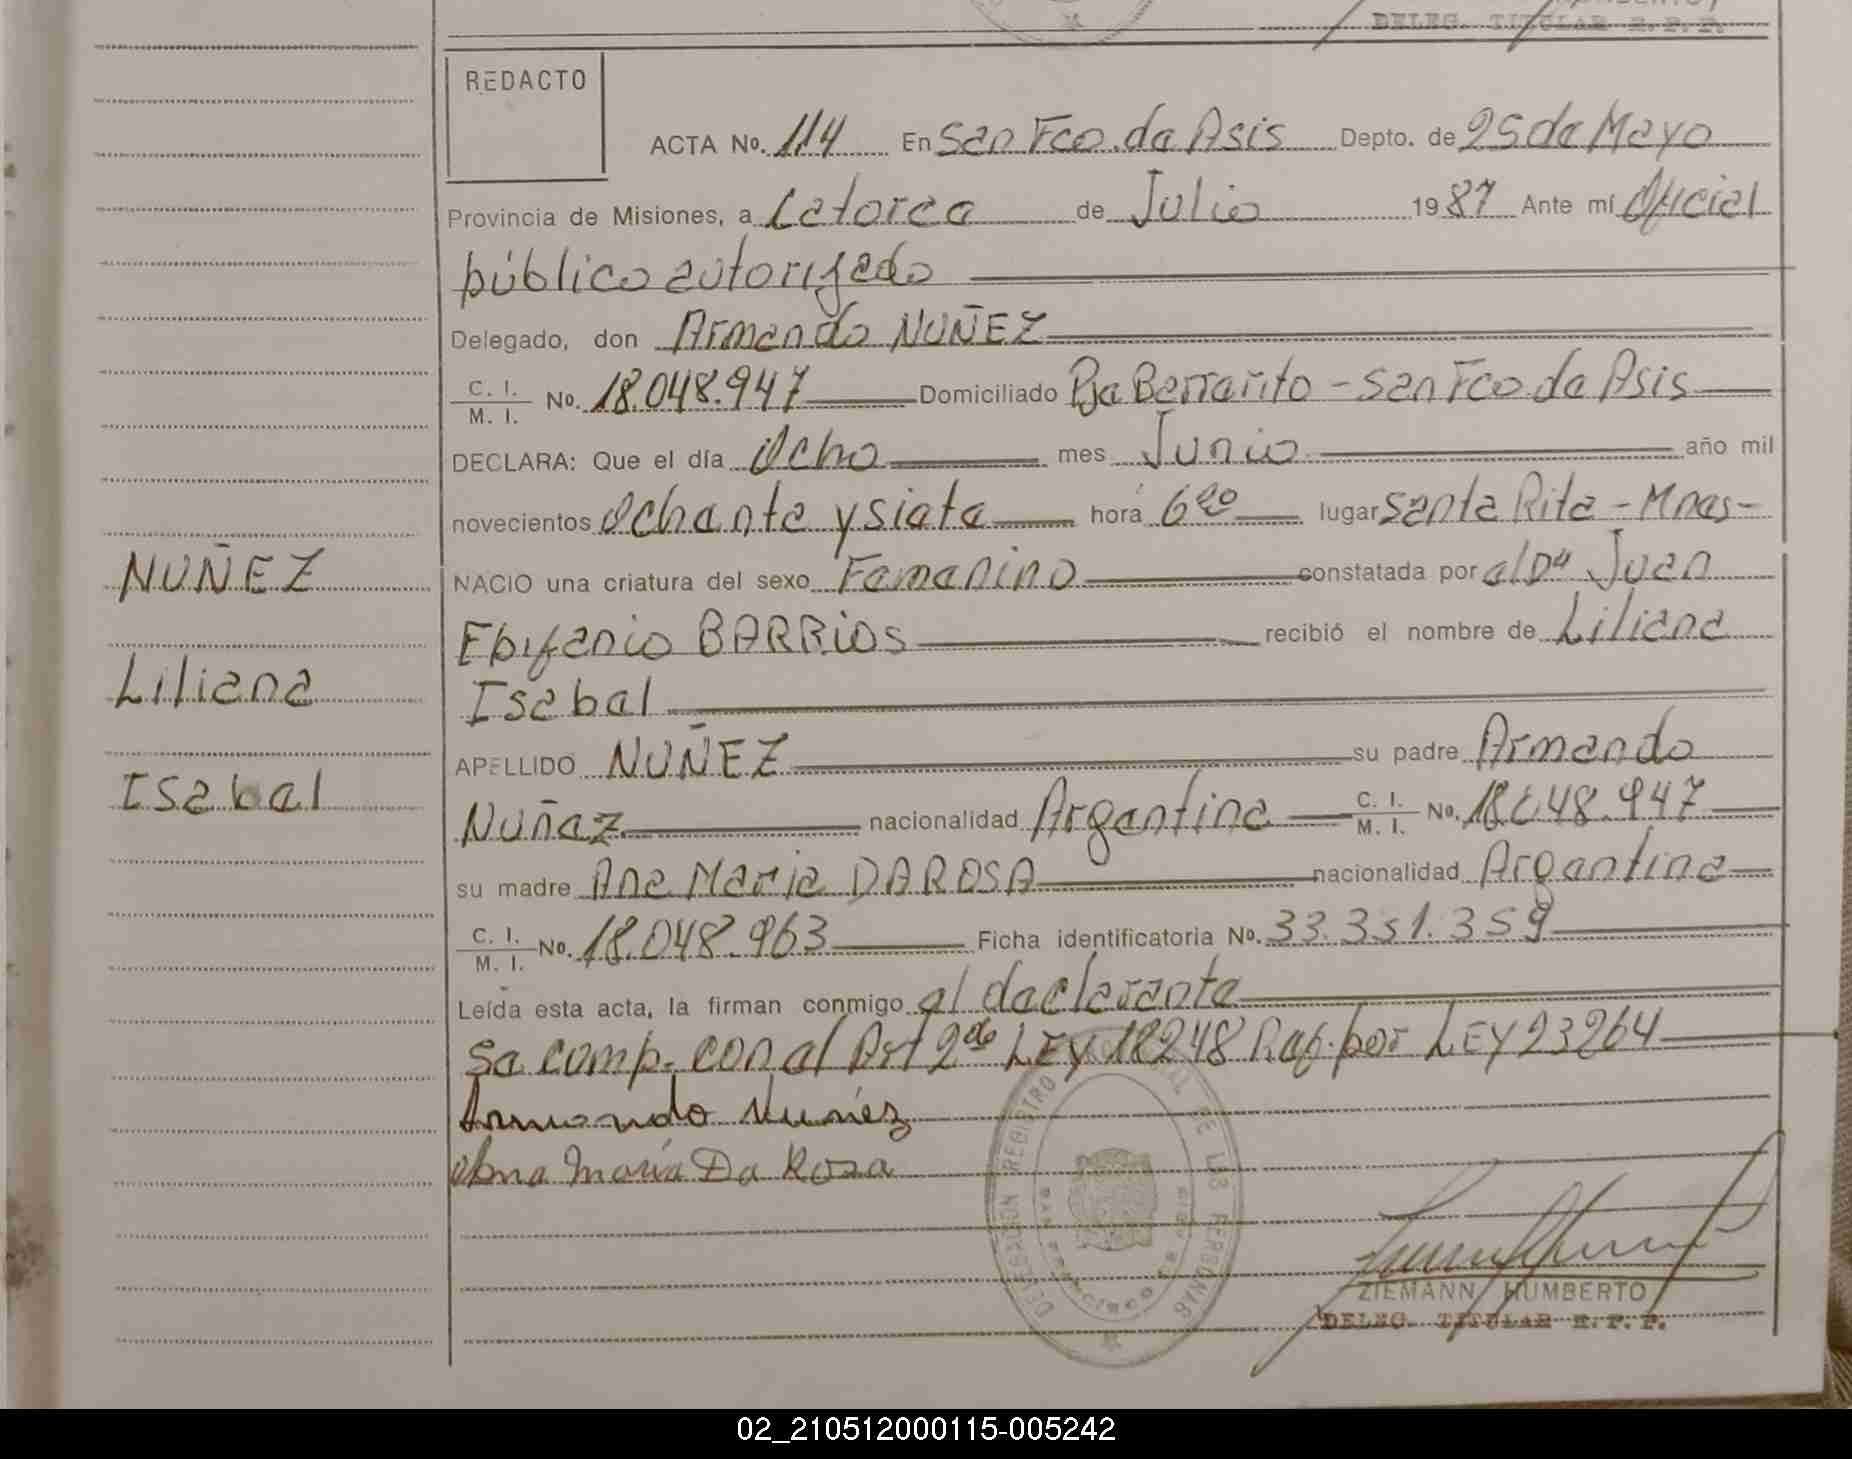 DELEG. TITULAR R. P. P.
REDACTO
ACTA No. 114 En San Fco. de Asis Depto. de 25 de Mayo
Provincia de Misiones, a Catorce de Julio 1987 Ante mí Oficial
público autorizado
Delegado, don Armando NUÑEZ
C. I. M. I. No. 18.048.947 Domiciliado Pja Berrarito - San Fco de Asis
DECLARA: Que el día Ocho mes Junio año mil
novecientos Ochenta y siete hora 6 00 lugar Santa Rita - Mnes-
NUÑEZ
NACIO una criatura del sexo Femenino constatada por el Dn Juan
Epifanio BARRIOS recibió el nombre de Liliana
Liliana
Isabel
APELLIDO NUÑEZ su padre Armando
Isabel
Nuñez nacionalidad Argentina C. I. M. I. No. 18.048.947
su madre Ana Maria DA ROSA nacionalidad Argentina
C. I. M. I. No. 18.048.963 Ficha identificatoria No. 33.351.359
Leída esta acta, la firman conmigo el declarante
Se comp. con el Art 2do LEY 18248 Ref. por LEY 23264
Armando Nuñez
Ana María Da Rosa
DELEGACION REGISTRO DE LAS PERSONAS
SAN FRANCISCO DE ASIS
ZIEMANN HUMBERTO
DELEG. TITULAR R. P. P.
02_210512000115-005242